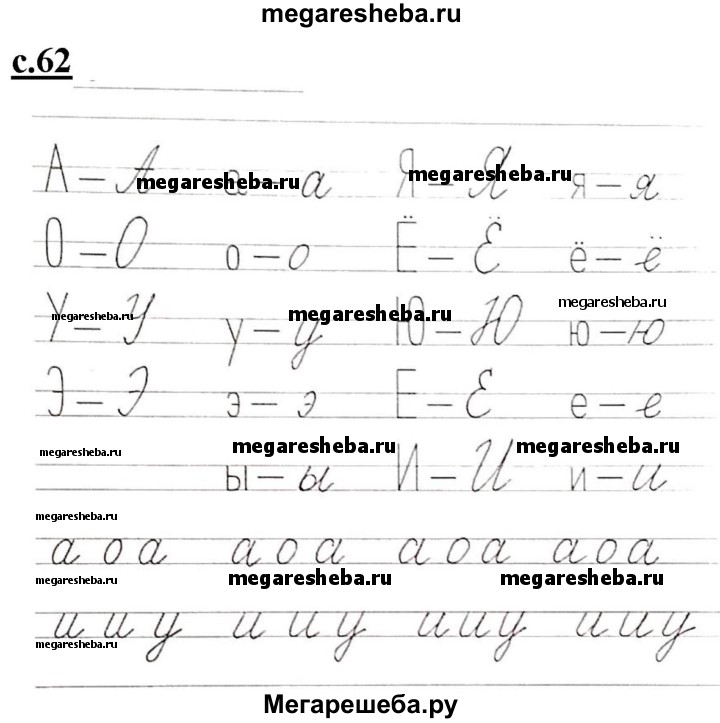 megaresheba.ru
с.62
А – А megaresheba.ru а – а Я – Я megaresheba.ru я – я
О – О о – о Ё – Ё ё – ё
У – У megaresheba.ru у – у megaresheba.ru Ю – Ю ю – ю megaresheba.ru
Э – Э э – э Е – Е е – е
megaresheba.ru ы – ы megaresheba.ru И – И megaresheba.ru и – и
megaresheba.ru
а о а а о а а о а а о а
megaresheba.ru megaresheba.ru megaresheba.ru
и и у и и у и и у и и у
megaresheba.ru
Мегарешеба.ру